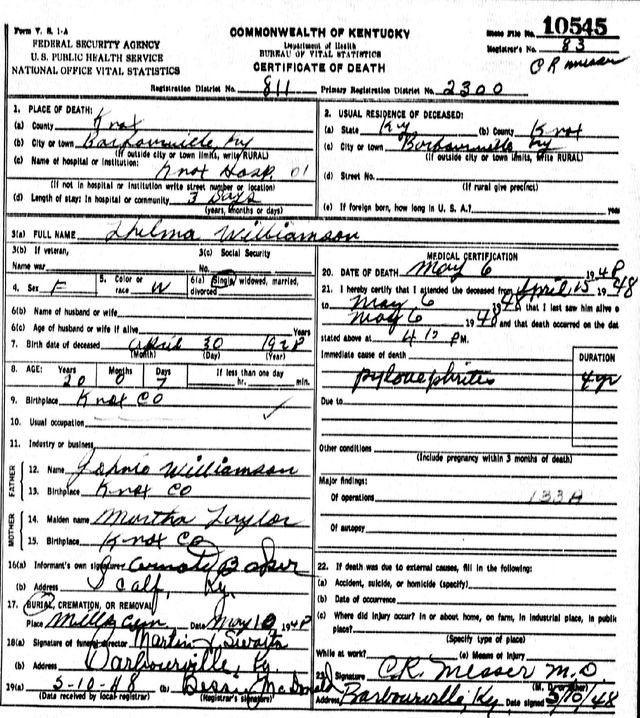 Form V. S. 1-A
FEDERAL SECURITY AGENCY
U. S. PUBLIC HEALTH SERVICE
NATIONAL OFFICE VITAL STATISTICS
COMMONWEALTH OF KENTUCKY
Department of Health
BUREAU OF VITAL STATISTICS
CERTIFICATE OF DEATH
File No. 10545
Registrar's No. 83
CR Messer
Registration District No. 811 Primary Registration District No. 2300
1. PLACE OF DEATH:
(a) County Knox
(b) City or town Barbourville Ky
(If outside city or town limits, write RURAL)
(c) Name of hospital or institution: Knox Hosp. 01
(If not in hospital or institution write street number or location)
(d) Length of stay: In hospital or community 3 Days
(years, months or days)
2. USUAL RESIDENCE OF DECEASED:
(a) State Ky (b) County Knox
(c) City or town Barbourville Ky
(If outside city or town limits, write RURAL)
(d) Street No.
(If rural give precinct)
(e) If foreign born, how long in U. S. A.? years
3(a) FULL NAME Thelma Williamson
3(b) If veteran, 3(c) Social Security
Name war No.
4. Sex F 5. Color or race W 6(a) Single, widowed, married, divorced
6(b) Name of husband or wife
6(c) Age of husband or wife if alive Years
7. Birth date of deceased April 30 1928
(Month) (Day) (Year)
8. AGE: Years Months Days If less than one day
20 0 7 hr. min.
9. Birthplace Knox Co
10. Usual occupation
11. Industry or business
FATHER
12. Name Williamson
13. Birthplace Knox Co
MOTHER
14. Maiden name Martha Taylor
15. Birthplace Knox Co
16(a) Informant's own signature
(b) Address Scalf, Ky.
17. BURIAL, CREMATION, OR REMOVAL
Place Date May 10 1948
18(a) Signature of funeral director Martin
(b) Address Barbourville, Ky
19(a) 5-10-48 (b) McDonald
(Date received by local registrar) (Registrar's signature)
MEDICAL CERTIFICATION
20. DATE OF DEATH May 6 1948
21. I hereby certify that I attended the deceased from April 15 1948
to May 6 1948 that I last saw him alive o
May 6 1948 and that death occurred on the dat
stated above at PM.
Immediate cause of death DURATION
pylonephritis 4 yr
Due to
Other conditions
(Include pregnancy within 3 months of death)
Major findings:
Of operations 133A
Of autopsy
22. If death was due to external causes, fill in the following:
(a) Accident, suicide, or homicide (specify)
(b) Date of occurrence
(c) Where did injury occur? In or about home, on farm, in industrial place, in public
place?
(Specify type of place)
While at work? (e) Means of Injury
23. Signature CR. Messer M.D.
(M. D. or other)
Address Barbourville Ky. Date signed 5/10/48